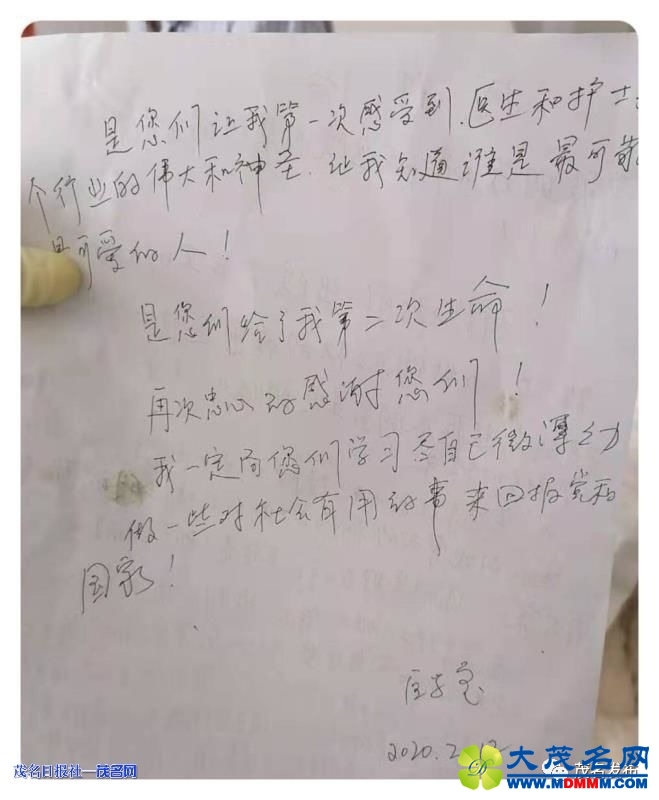 是您们让我第一次感受到.医生和护士
个行业的伟大和神圣.让我知道谁是最可靠
是可爱的人!
是您们给了我第二次生命!
再次忠心的感谢您们!
我一定向您们学习尽自己微薄之力
做一些对社会有用的事来回报党和
国家!
2020.2.12
茂名日报社—茂名网
茂名发布
大茂名网
www.MDMMM.com